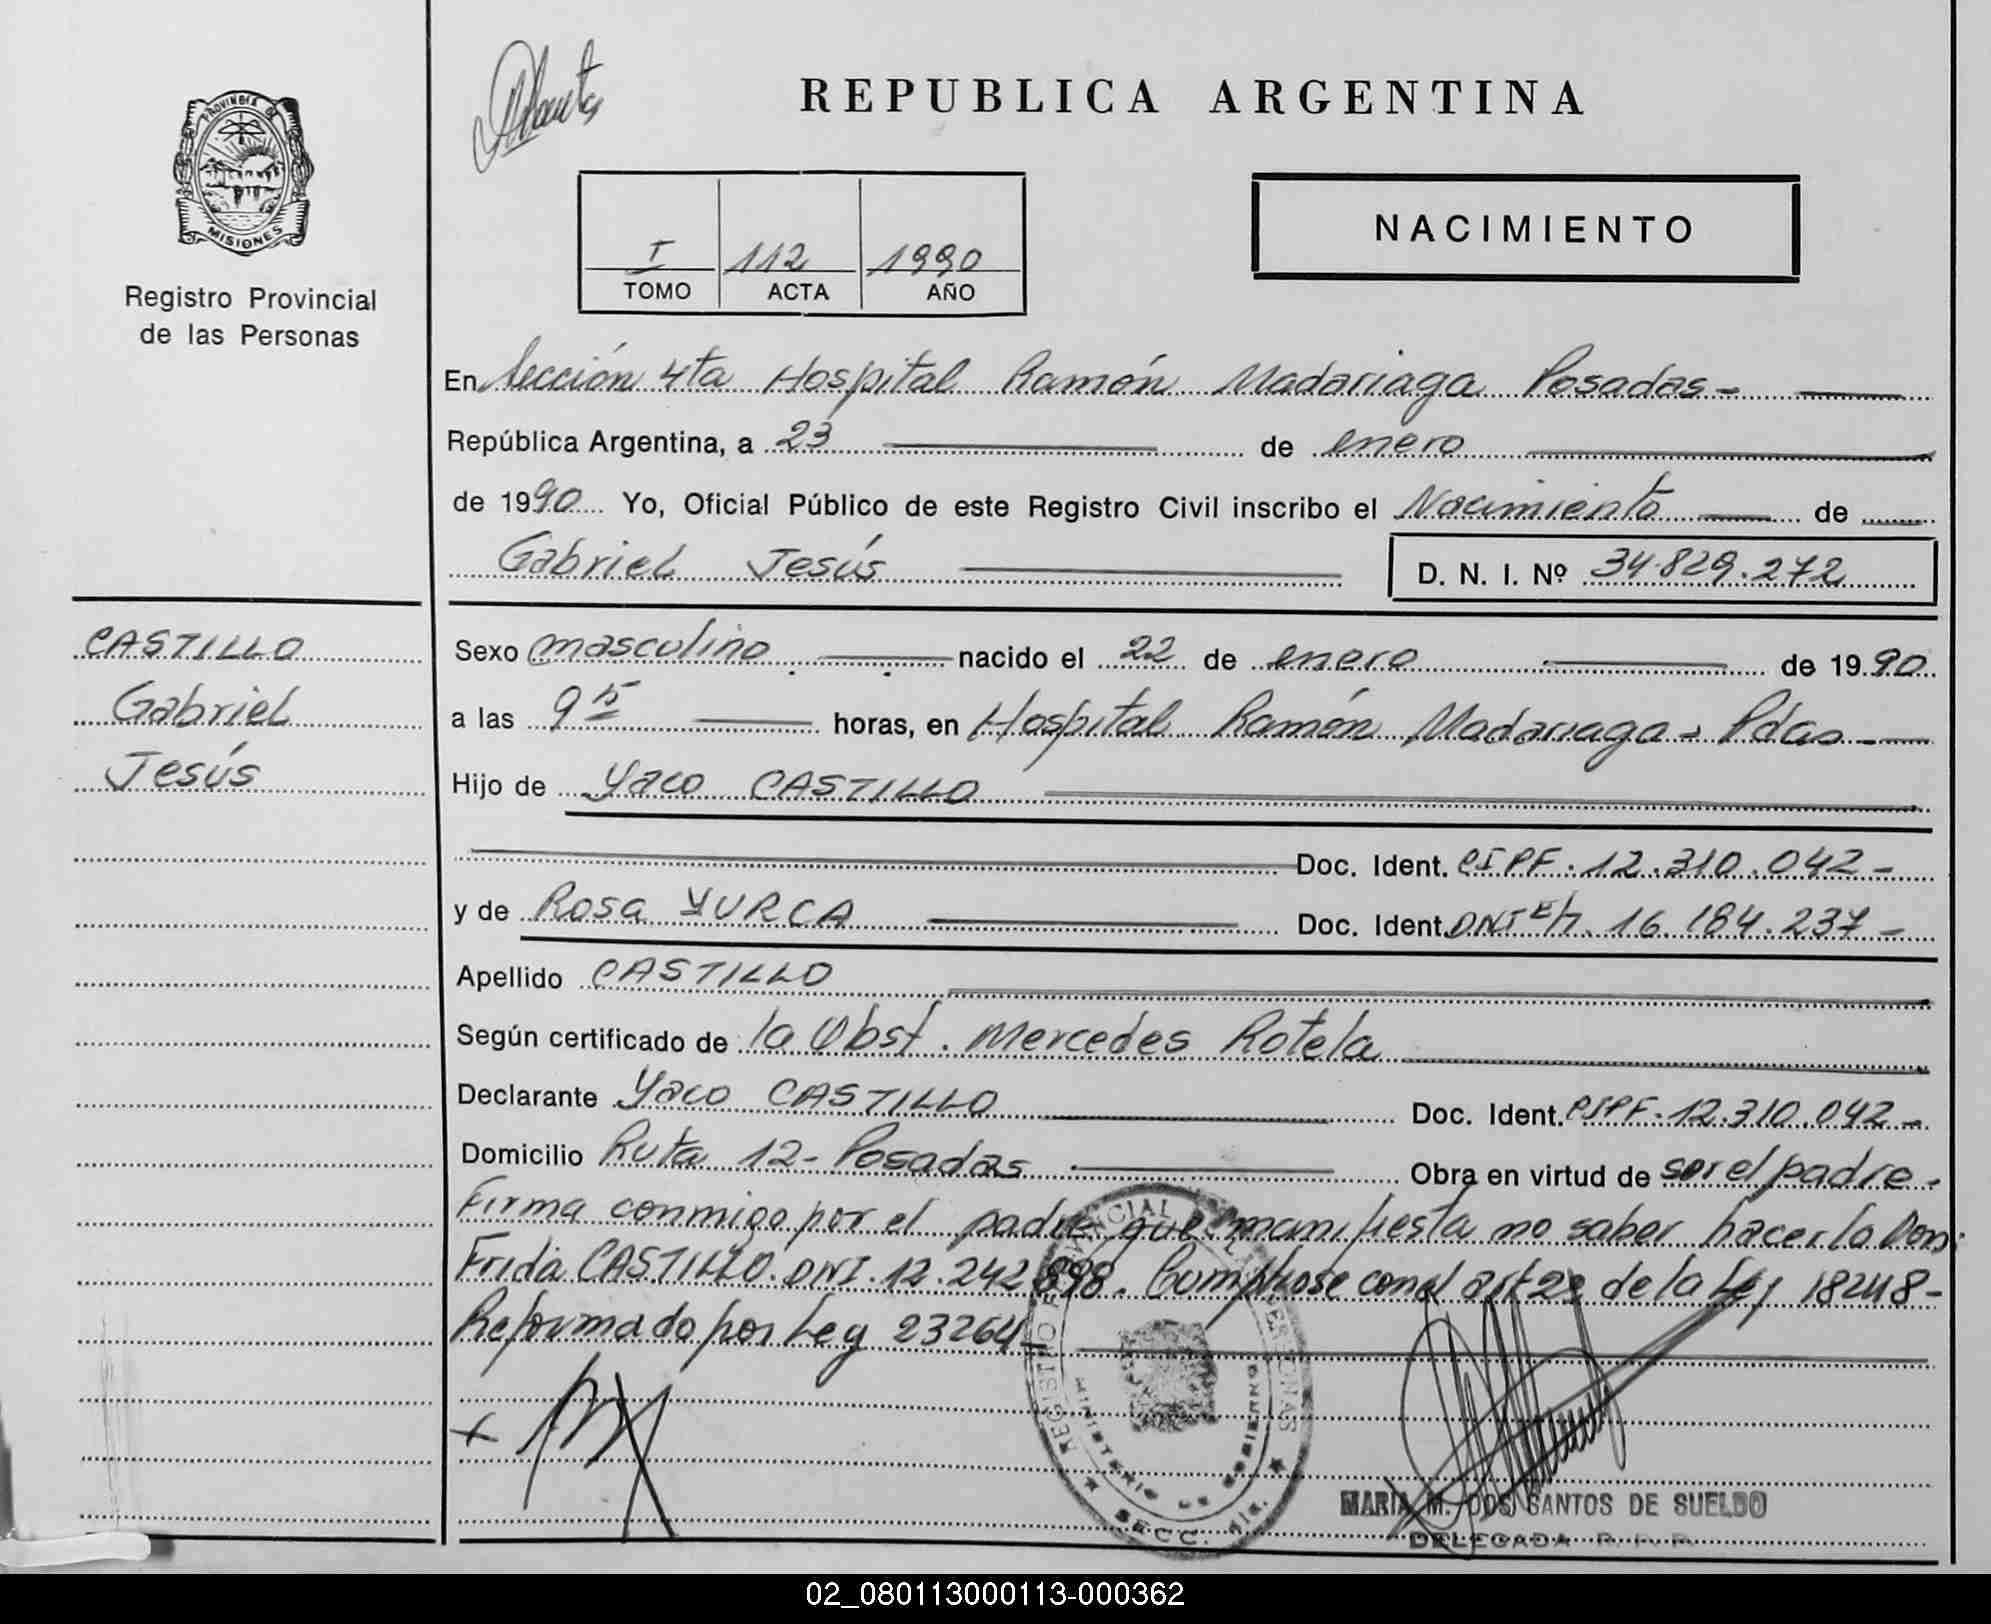 PROVINCIA DE
MISIONES
Registro Provincial
de las Personas
CASTILLO
Gabriel
Jesús
REPUBLICA ARGENTINA
I 112 1990
TOMO ACTA AÑO
NACIMIENTO
En Sección 4ta Hospital Ramón Madariaga Posadas-
República Argentina, a 23 de enero
de 1990 Yo, Oficial Público de este Registro Civil inscribo el Nacimiento de
Gabriel Jesús D. N. I. Nº 34.829.272
Sexo masculino nacido el 22 de enero de 1990
a las 9 15 horas, en Hospital Ramón Madariaga - Pdas -
Hijo de Yaco CASTILLO
Doc. Ident. CIPF. 12.310.042-
y de Rosa YURCA Doc. Ident. DNI 16.184.237-
Apellido CASTILLO
Según certificado de la Obst. Mercedes Rotela
Declarante Yaco CASTILLO Doc. Ident. CIPF. 12.310.042-
Domicilio Ruta 12- Posadas Obra en virtud de ser el padre.
Firma conmigo por el padre que manifiesta no saber hacerlo Don:
Frida CASTILLO. DNI. 12.242.898. Cumpliose con el art 2º de la Ley 18248-
Reformado por Ley 23264
REGISTRO PROVINCIAL DE LAS PERSONAS
MINISTERIO DE GOBIERNO
SECC. 4ta.
MARIA M. DOS SANTOS DE SUELDO
DELEGADA R. P. P.
02_080113000113-000362